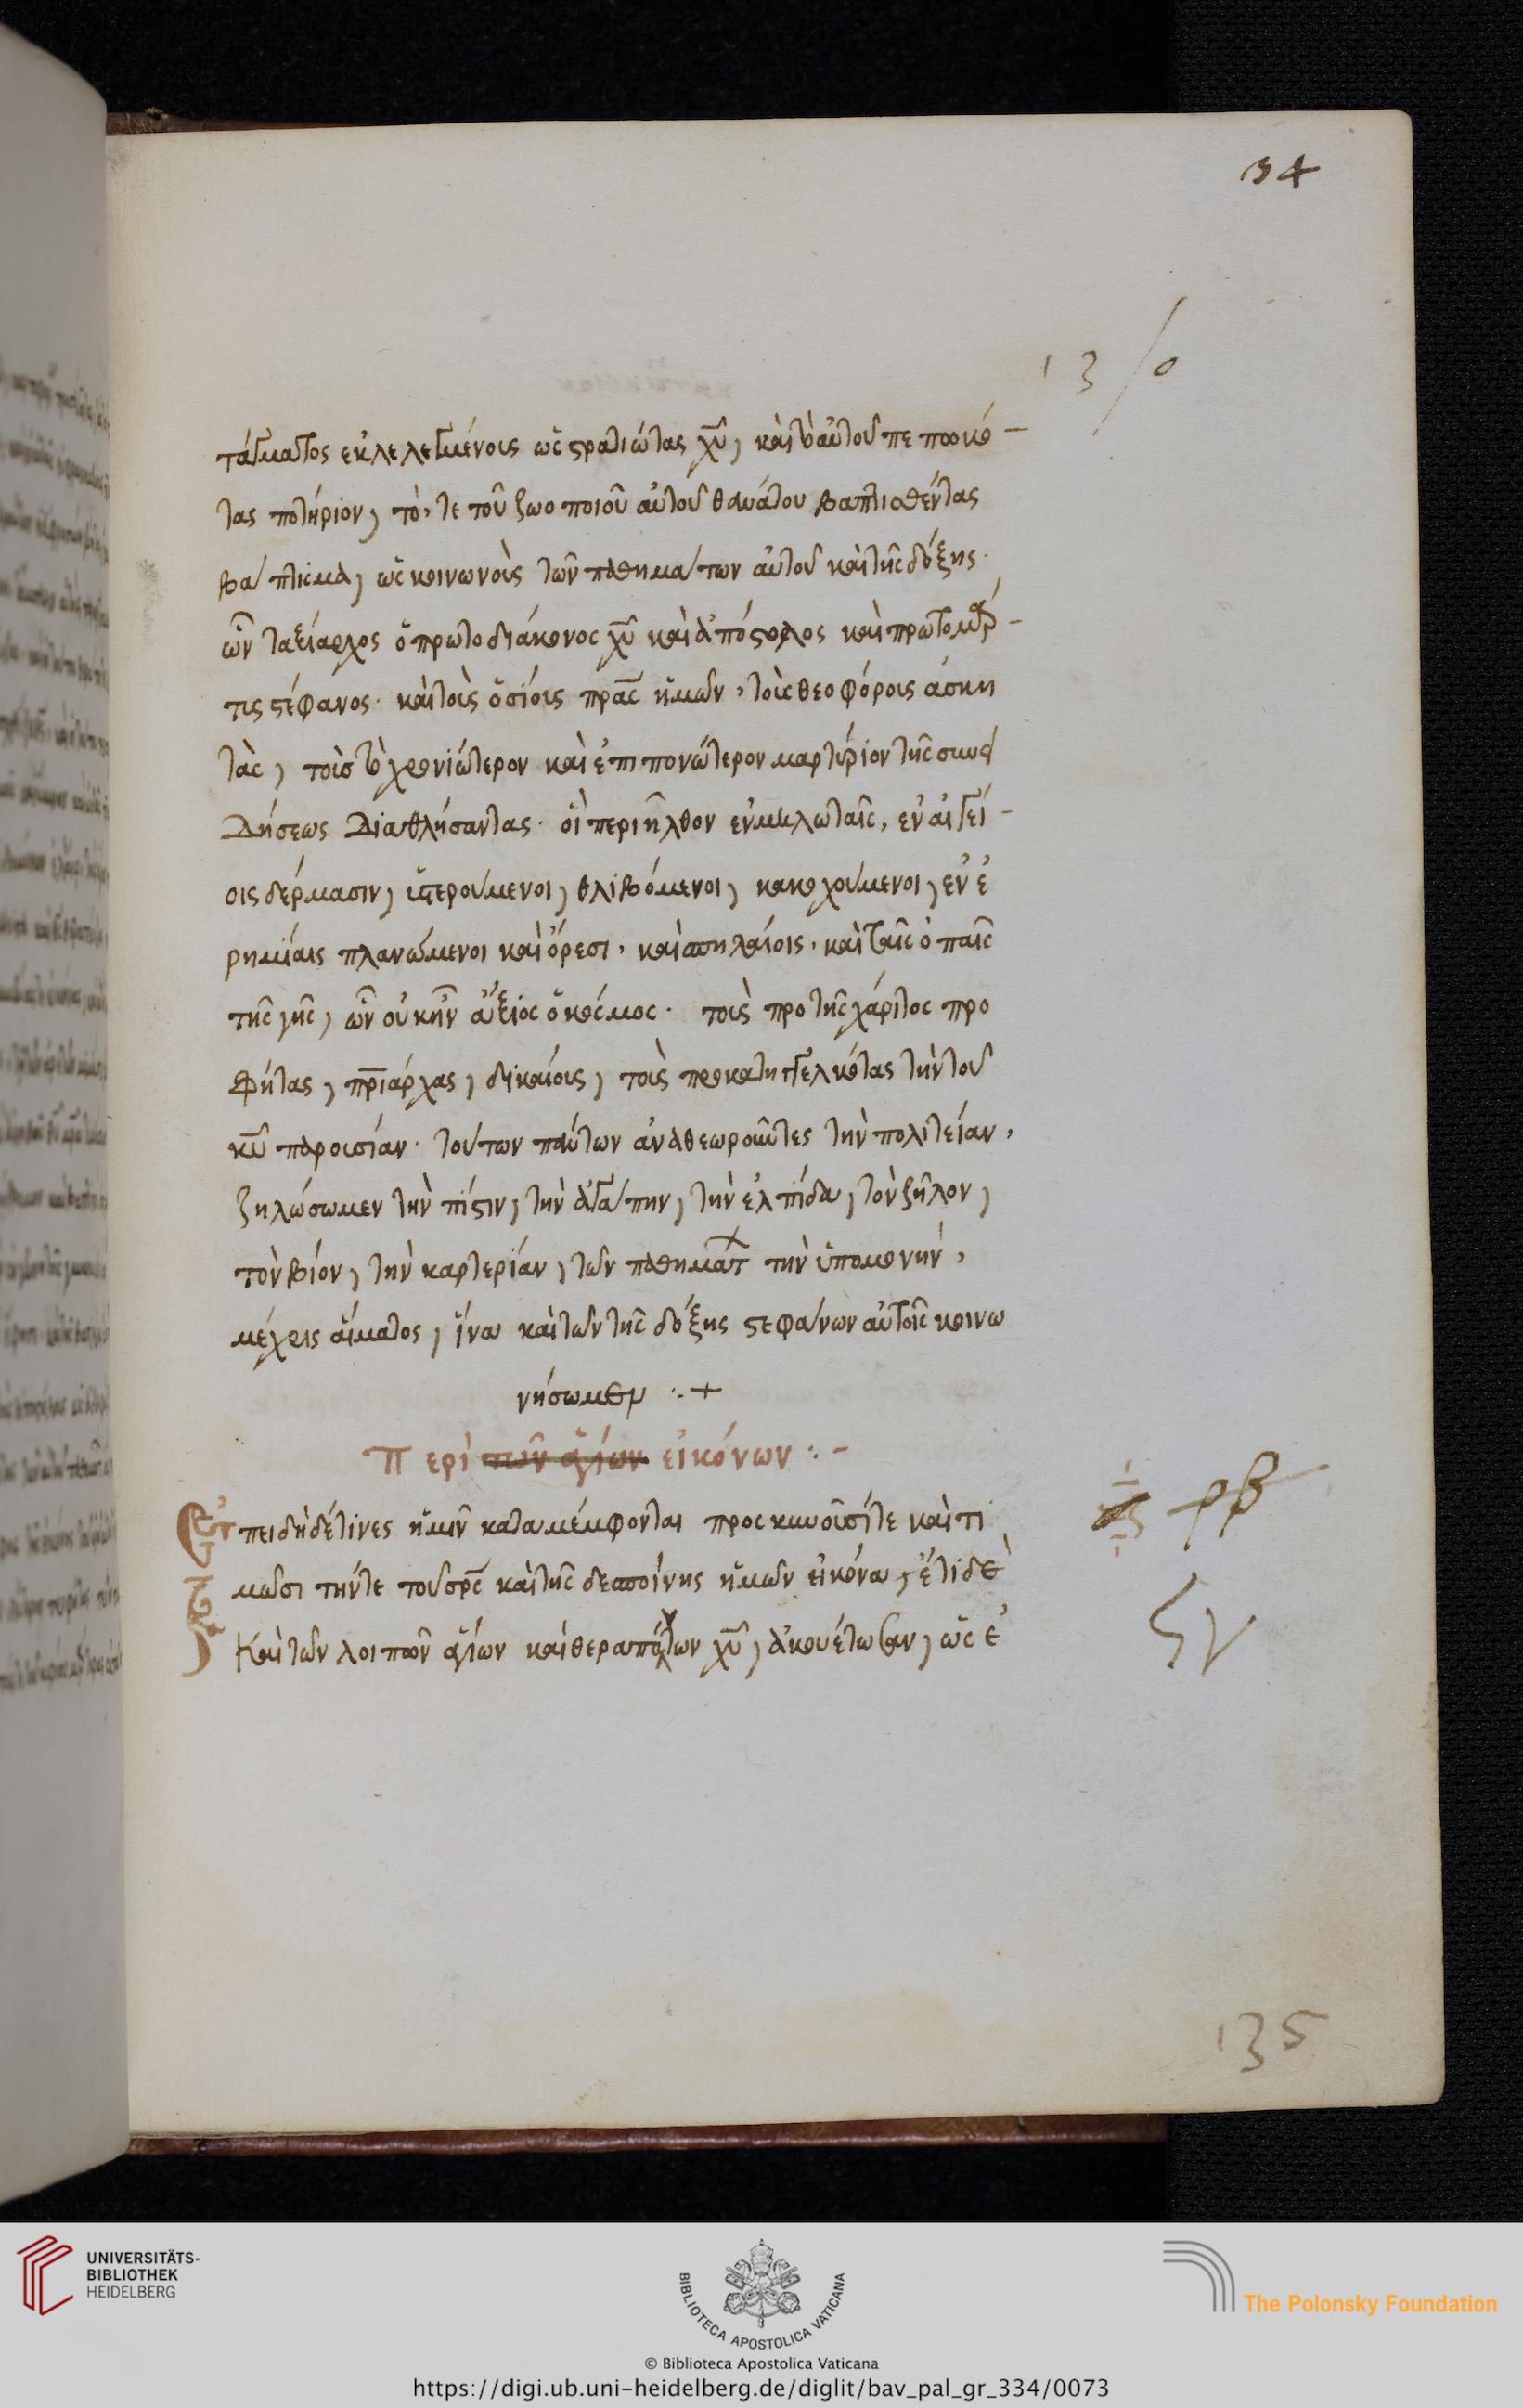 34
13/0
τάγματος ἐκλελεγμένους ὡς στρατιώτας χῦ, καὶ τὸ αὐτοῦ πεπωκό-
τας ποτήριον, τό, τε τοῦ ζωοποιοῦ αὐτοῦ θανάτου βαπτισθέντας
βάπτισμα, ὡς κοινωνοὺς τῶν παθημάτων αὐτοῦ καὶ τῆς δόξης.
ὧν ταξίαρχος ὁ πρωτοδιάκονος χῦ καὶ ἀπόστολος καὶ πρωτομρ-
τις στέφανος. καὶ τοὺς ὁσίους πρας ἡμῶν, τοὺς θεοφόρους ἀσκη
τὰς, τοὺς τὸ χρονιώτερον καὶ ἐπιπονώτερον μαρτύριον τῆς συνει
δήσεως διαθλήσαντας. οἳ περιῆλθον ἐν μηλωταῖς, ἐν αἰγεί-
οις δέρμασιν, ὑστερούμενοι, θλιβόμενοι, κακοχούμενοι, ἐν ἐ
ρημίαις πλανώμενοι καὶ ὄρεσι, καὶ σπηλαίοις, καὶ ταῖς ὀπαῖς
τῆς γῆς, ὧν οὐκ ἦν ἄξιος ὁ κόσμος. τοὺς προ τῆς χάριτος προ
φήτας, πριάρχας, δικαίους, τοὺς προκατηγγελκότας τὴν τοῦ
κῦ παρουσίαν. τούτων πάντων ἀναθεωροῦντες τὴν πολιτείαν,
ζηλώσωμεν τὴν πίστιν, τὴν ἀγάπην, τὴν ἐλπίδα, τὸν ζῆλον,
τὸν βίον, τὴν καρτερίαν, τῶν παθημάτ τὴν ὑπομονὴν,
μέχρις αἵματος, ἵνα καὶ τῶν τῆς δόξης στεφάνων αὐτοῖς κοινω
νήσωμεν :. +
Περὶ τῶν ἁγίων εἰκόνων : -
Ἐπειδὴ δέ τινες ἡμῖν καταμέμφονται προσκυνοῦσί τε καὶ τι
μῶσι τήν τε τοῦ σρς καὶ τῆς δεσποίνης ἡμῶν εἰκόνα, ἔτι δὲ
καὶ τῶν λοιπῶν ἁγίων καὶ θεραπόντων χῦ, ἀκουέτωσαν, ὡς ἐ
ρβ
135
UNIVERSITÄTS-
BIBLIOTHEK
HEIDELBERG
BIBLIOTECA APOSTOLICA VATICANA
The Polonsky Foundation
© Biblioteca Apostolica Vaticana
https://digi.ub.uni-heidelberg.de/diglit/bav_pal_gr_334/0073